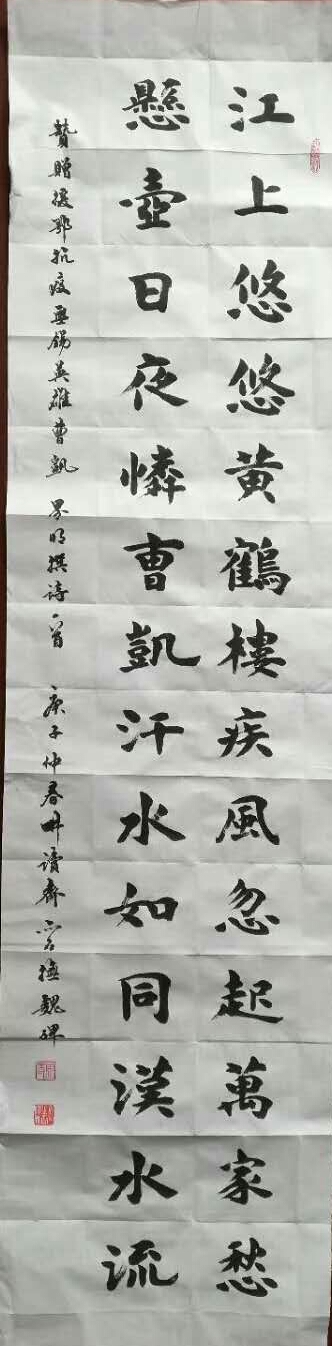 江上悠悠黄鶴樓疾風忽起萬家愁
懸壺日夜憐曹凱汗水如同漢水流
贊贈援鄂抗疫無锡英雄曹凱 明撰诗一首 庚子仲春畊讀齋 魏碑